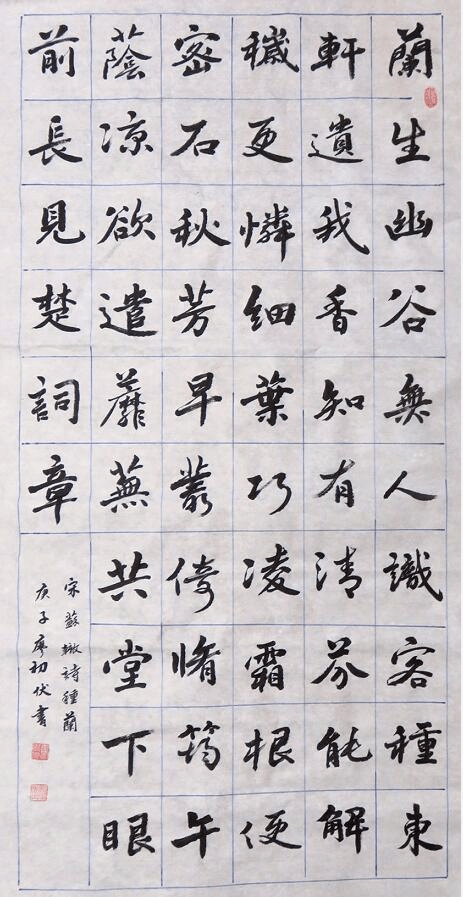 蘭生幽谷無人識客種東
軒遺我香知有清芬能解
穢更憐細葉巧凌霜根便
密石秋芳早叢倚脩筠午
蔭凉欲遣蘼蕪共堂下眼
前長見楚詞章
宋蘇轍詩種蘭
庚子廖初伏書